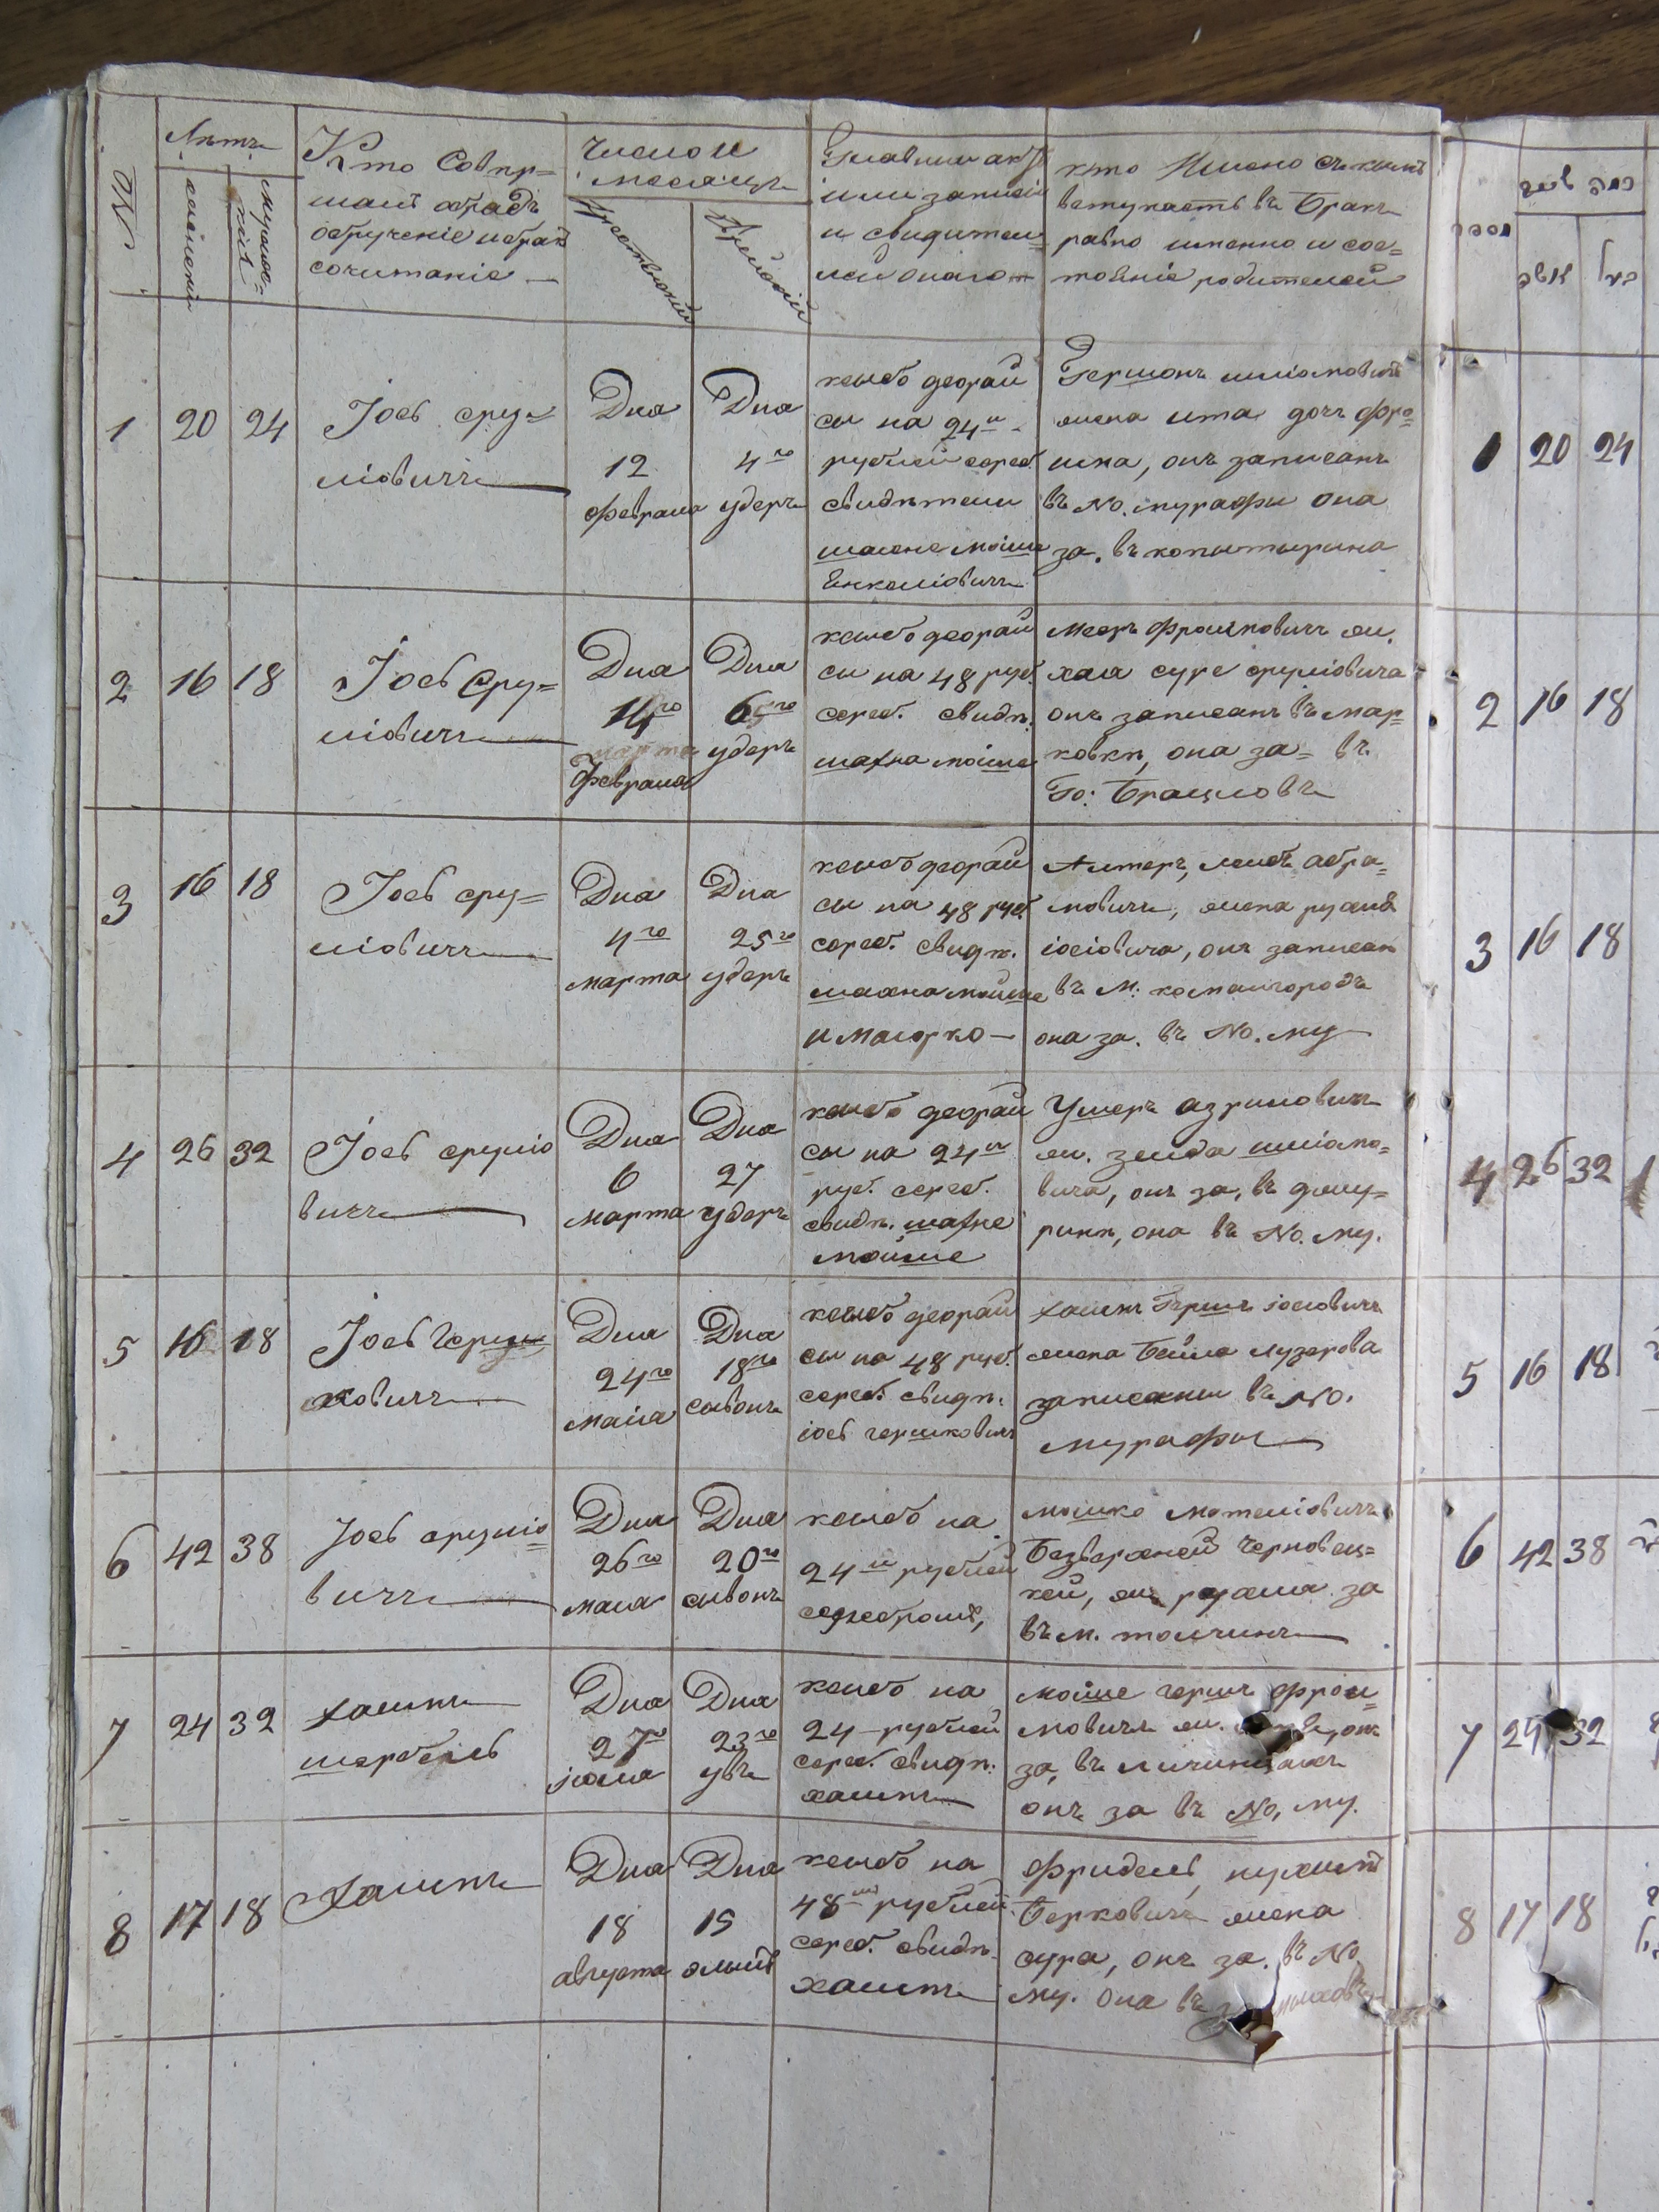 №
Лѣтъ
женскій
мужеской
Кто Совер=
шаетъ обрядъ
обрученіе и брако
сочитаніе —
Число и
месяцъ
Христьянскій
Еврейскій
Главныи актъ
или записи
и свидител=
лей онаго
кто Имено съ кемъ
вступаетъ въ Бракъ
равно именно и сос=
тояніе родителей
1
20
24
Іось сру=
ліовичъ
Дна
12
февраля
Дна
4го
удеръ
ксыбо деорай
сы на 24и
рублей сереб.
свидѣтели
шахне мойше
Енкеліовичъ
Гершонъ шліомовичъ
жена ита дочъ фро=
има, онъ записанъ
въ No. мурафы она
за. въ копытирина
2
16
18
Іось Сру=
ліовичъ
Дна
14го
февраля
Дна
6го
удеръ
ксыбо деорай
сы на 48 руб.
сереб. свидѣ.
шахна мойше
Мееръ Фроимовичъ жи.
хая суре сруліовича
онъ записанъ въ мар=
ковки, она за= въ
Го: Брацловъ
3
16
18
Іось сру=
ліовичъ
Дна
4го
марта
Дна
25го
удеръ
ксыбо деорай
сы на 48 руб.
сереб. свидѣ.
шахна мойше
и Маіорко —
Алтеръ, лейбъ абра=
мовичъ, жена рухля
іосіовича, онъ записан
въ М: комаигородъ
она за. въ No. му
4
26
32
Іось сруліо
вичъ
Дна
6
марта
Дна
27
удеръ
ксыбо деорай
сы на 24и
руб. сереб.
свидѣ. шахне
мойше
Ушеръ азриловичъ
жи. зелда шліомо=
вича, онъ за, въ джу=
ринѣ, она въ No. му.
5
16
18
Іось Герш
ковичъ
Дна
24го
маія
Дна
18го
сывонъ
ксыбо деорай
сы на 48 руб.
сереб. свидѣ.
іось гершковичъ
хаимъ Гершъ іосіовичъ
жена Бейла лузерова
записаны въ No.
мурафы
6
42
38
Іось сруліо=
вичъ
Дна
26го
маія
Дна
20го
сывонъ
ксыбо на
24и рублей
серебромъ,
мошко мотеліовичъ
Безверхней Черновец=
кей, жи. рухля за
въ м. томчинъ
7
24
32
хаимъ
шербель
Дна
27го
іюля
Дна
23го
увъ
ксыбо на
24 рублей
сереб. свидѣ.
хаимъ
мойше гершъ фрои=
мовичъ жи.
за, въ
онъ за въ No, му.
8
17
18
Хаимъ
Дна
18
августа
Дна
15
элыль
ксыбо на
48 рублей
сереб. свидѣ.
хаимъ
Фридель,
Берковичъ жена
сура, онъ за. въ No
му. Она въ
1
20
24
2
16
18
3
16
18
4
26
32
5
16
18
6
42
38
7
24
32
8
17
18